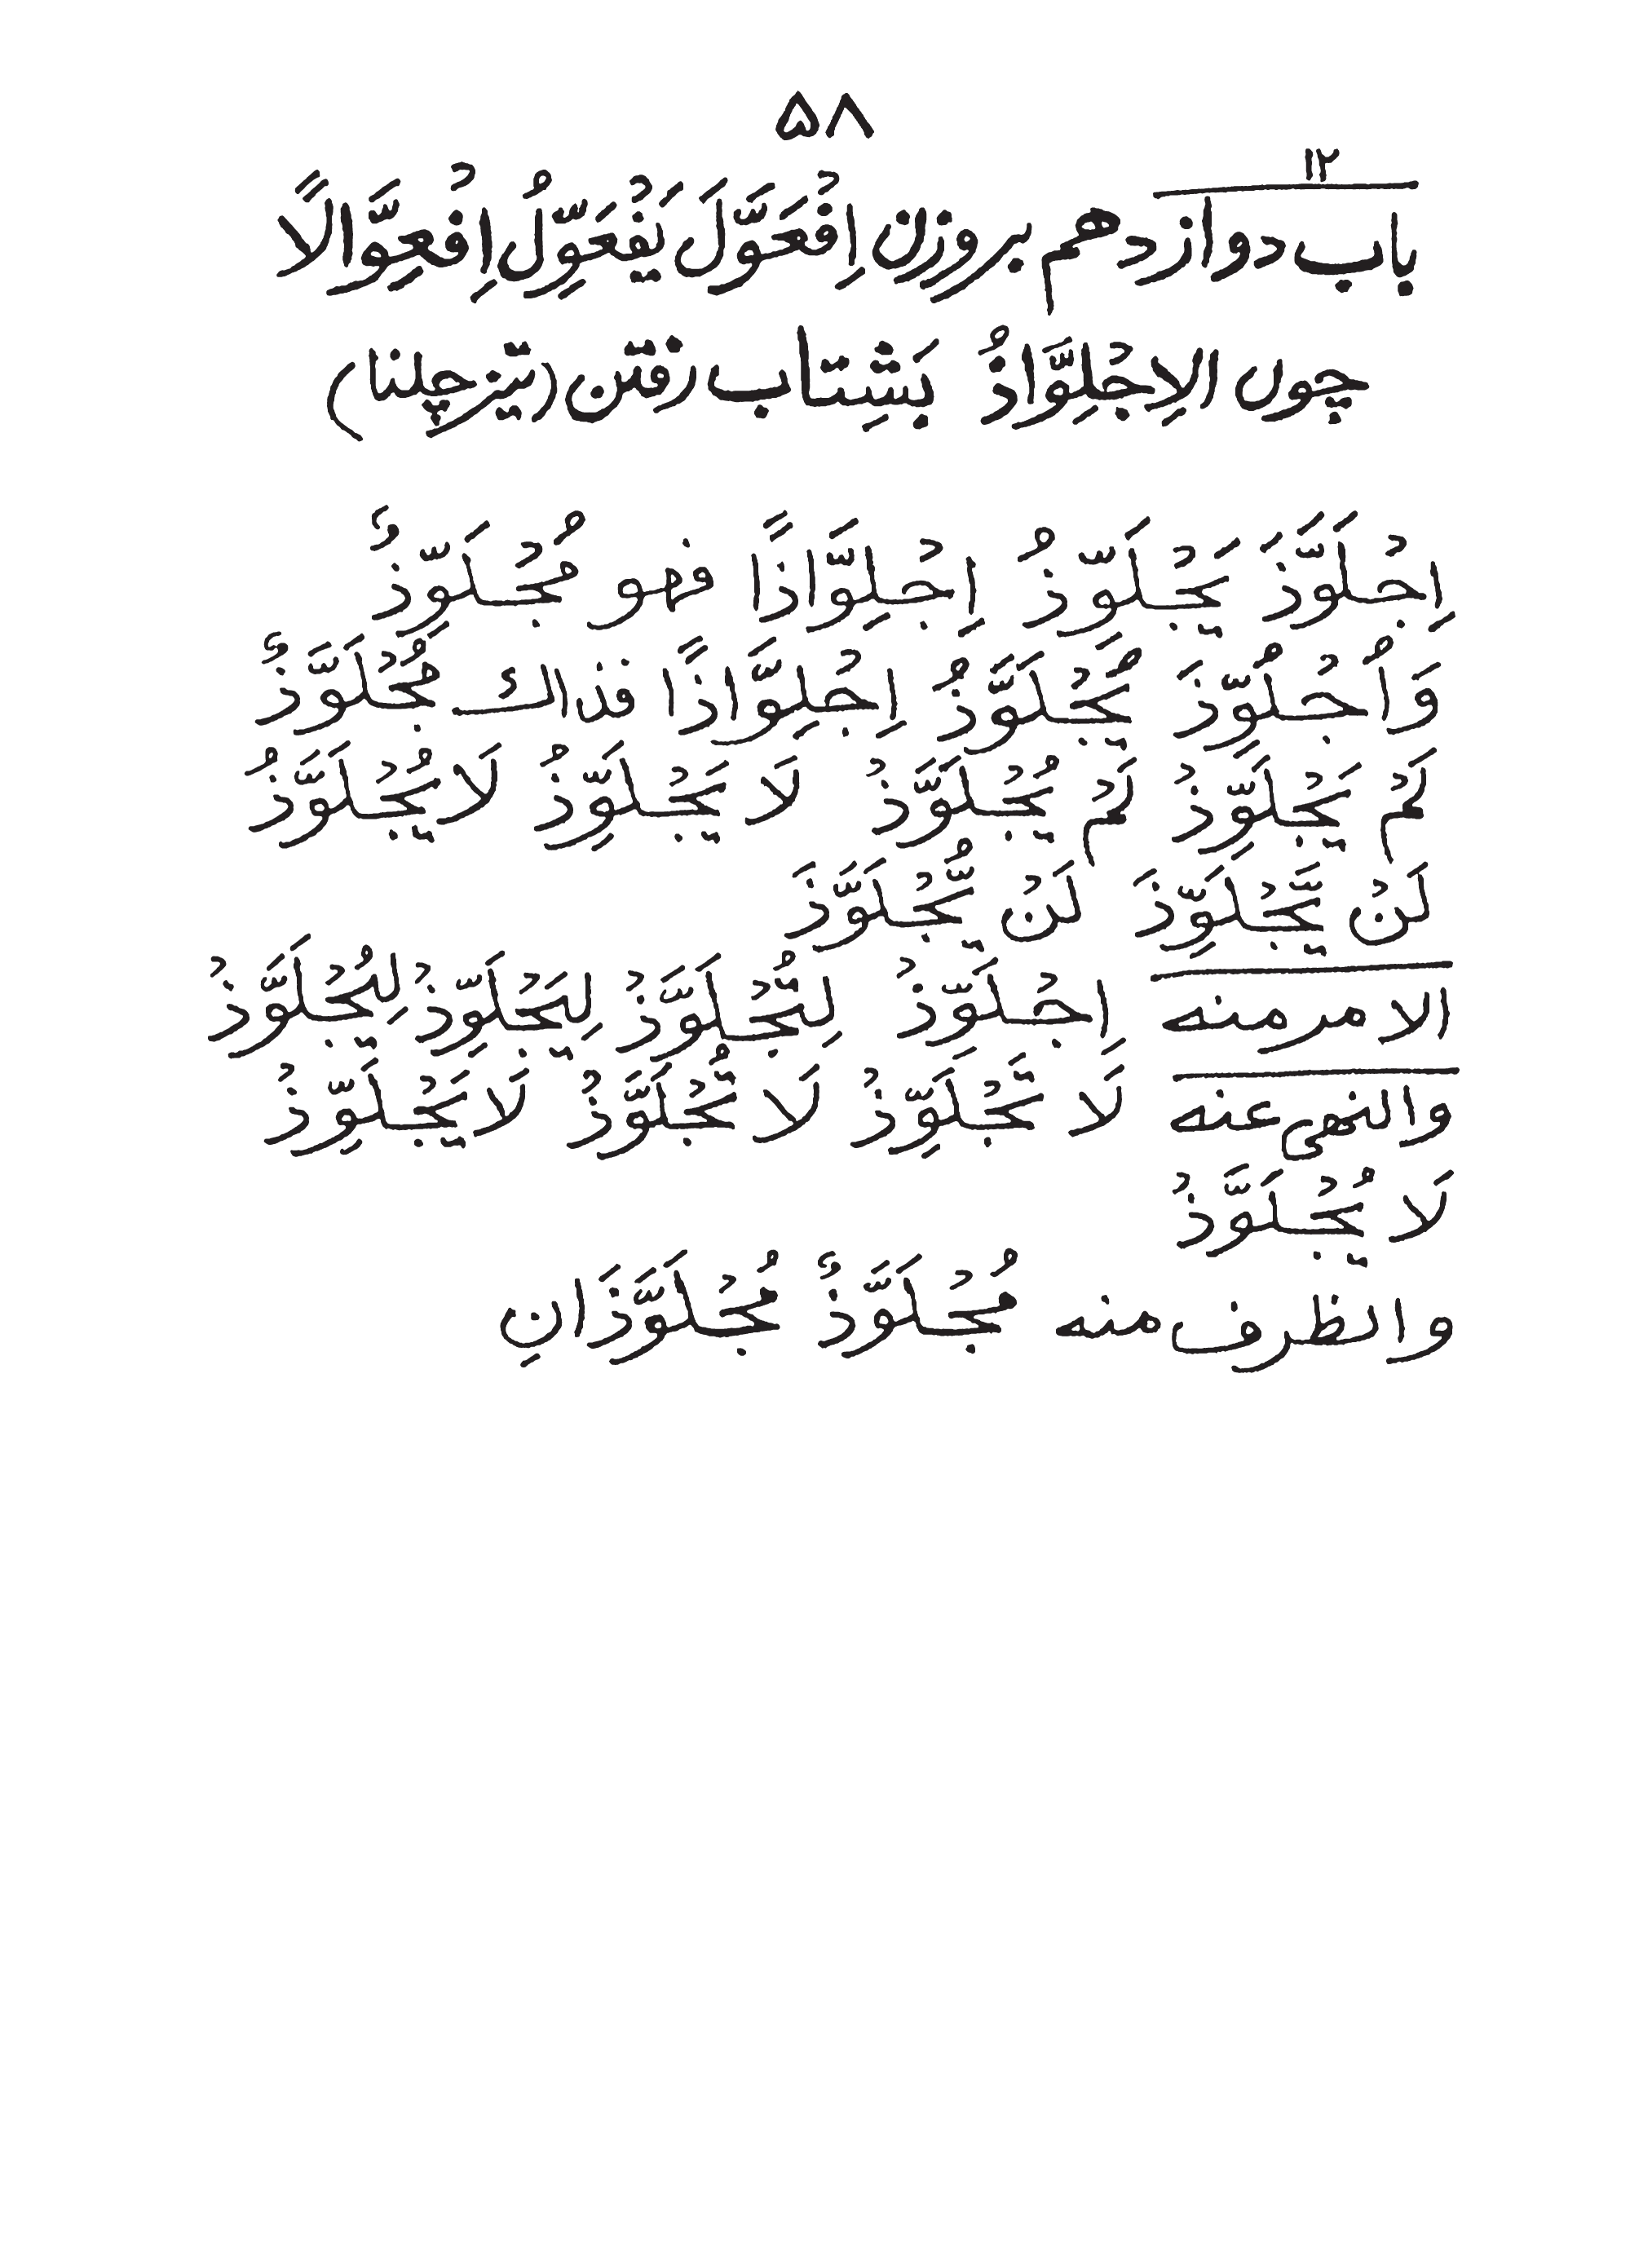 ۵۸
۱۲
باب دوازدهم بروزن اِفْعَوَّلَ يَفْعَوِّلُ اِفْعِوَّالًا
چوں الاِجْلِوَّاذُ بَشِتاب رفتن (تیز چلنا)
اِجْلَوَّذَ يَجْلَوِّذُ اِجْلِوَّاذًا فهو مُجْلَوِّذٌ
وَاُجْلُوِّذَ يُجْلَوَّذُ اِجْلِوَّاذًا فذاك مُجْلَوَّذٌ
لَمْ يَجْلَوِّذْ لَمْ يُجْلَوَّذْ لَا يَجْلَوِّذُ لَا يُجْلَوَّذُ
لَنْ يَّجْلَوِّذَ لَنْ يُّجْلَوَّذَ
الامر منه اِجْلَوِّذْ لِتُجْلَوَّذْ لِيَجْلَوِّذْ لِيُجْلَوَّذْ
والنهى عنه لَا تَجْلَوِّذْ لَا تُجْلَوَّذْ لَا يَجْلَوِّذْ
لَا يُجْلَوَّذْ
والظرف منه مُجْلَوَّذٌ مُجْلَوَّذَانِ